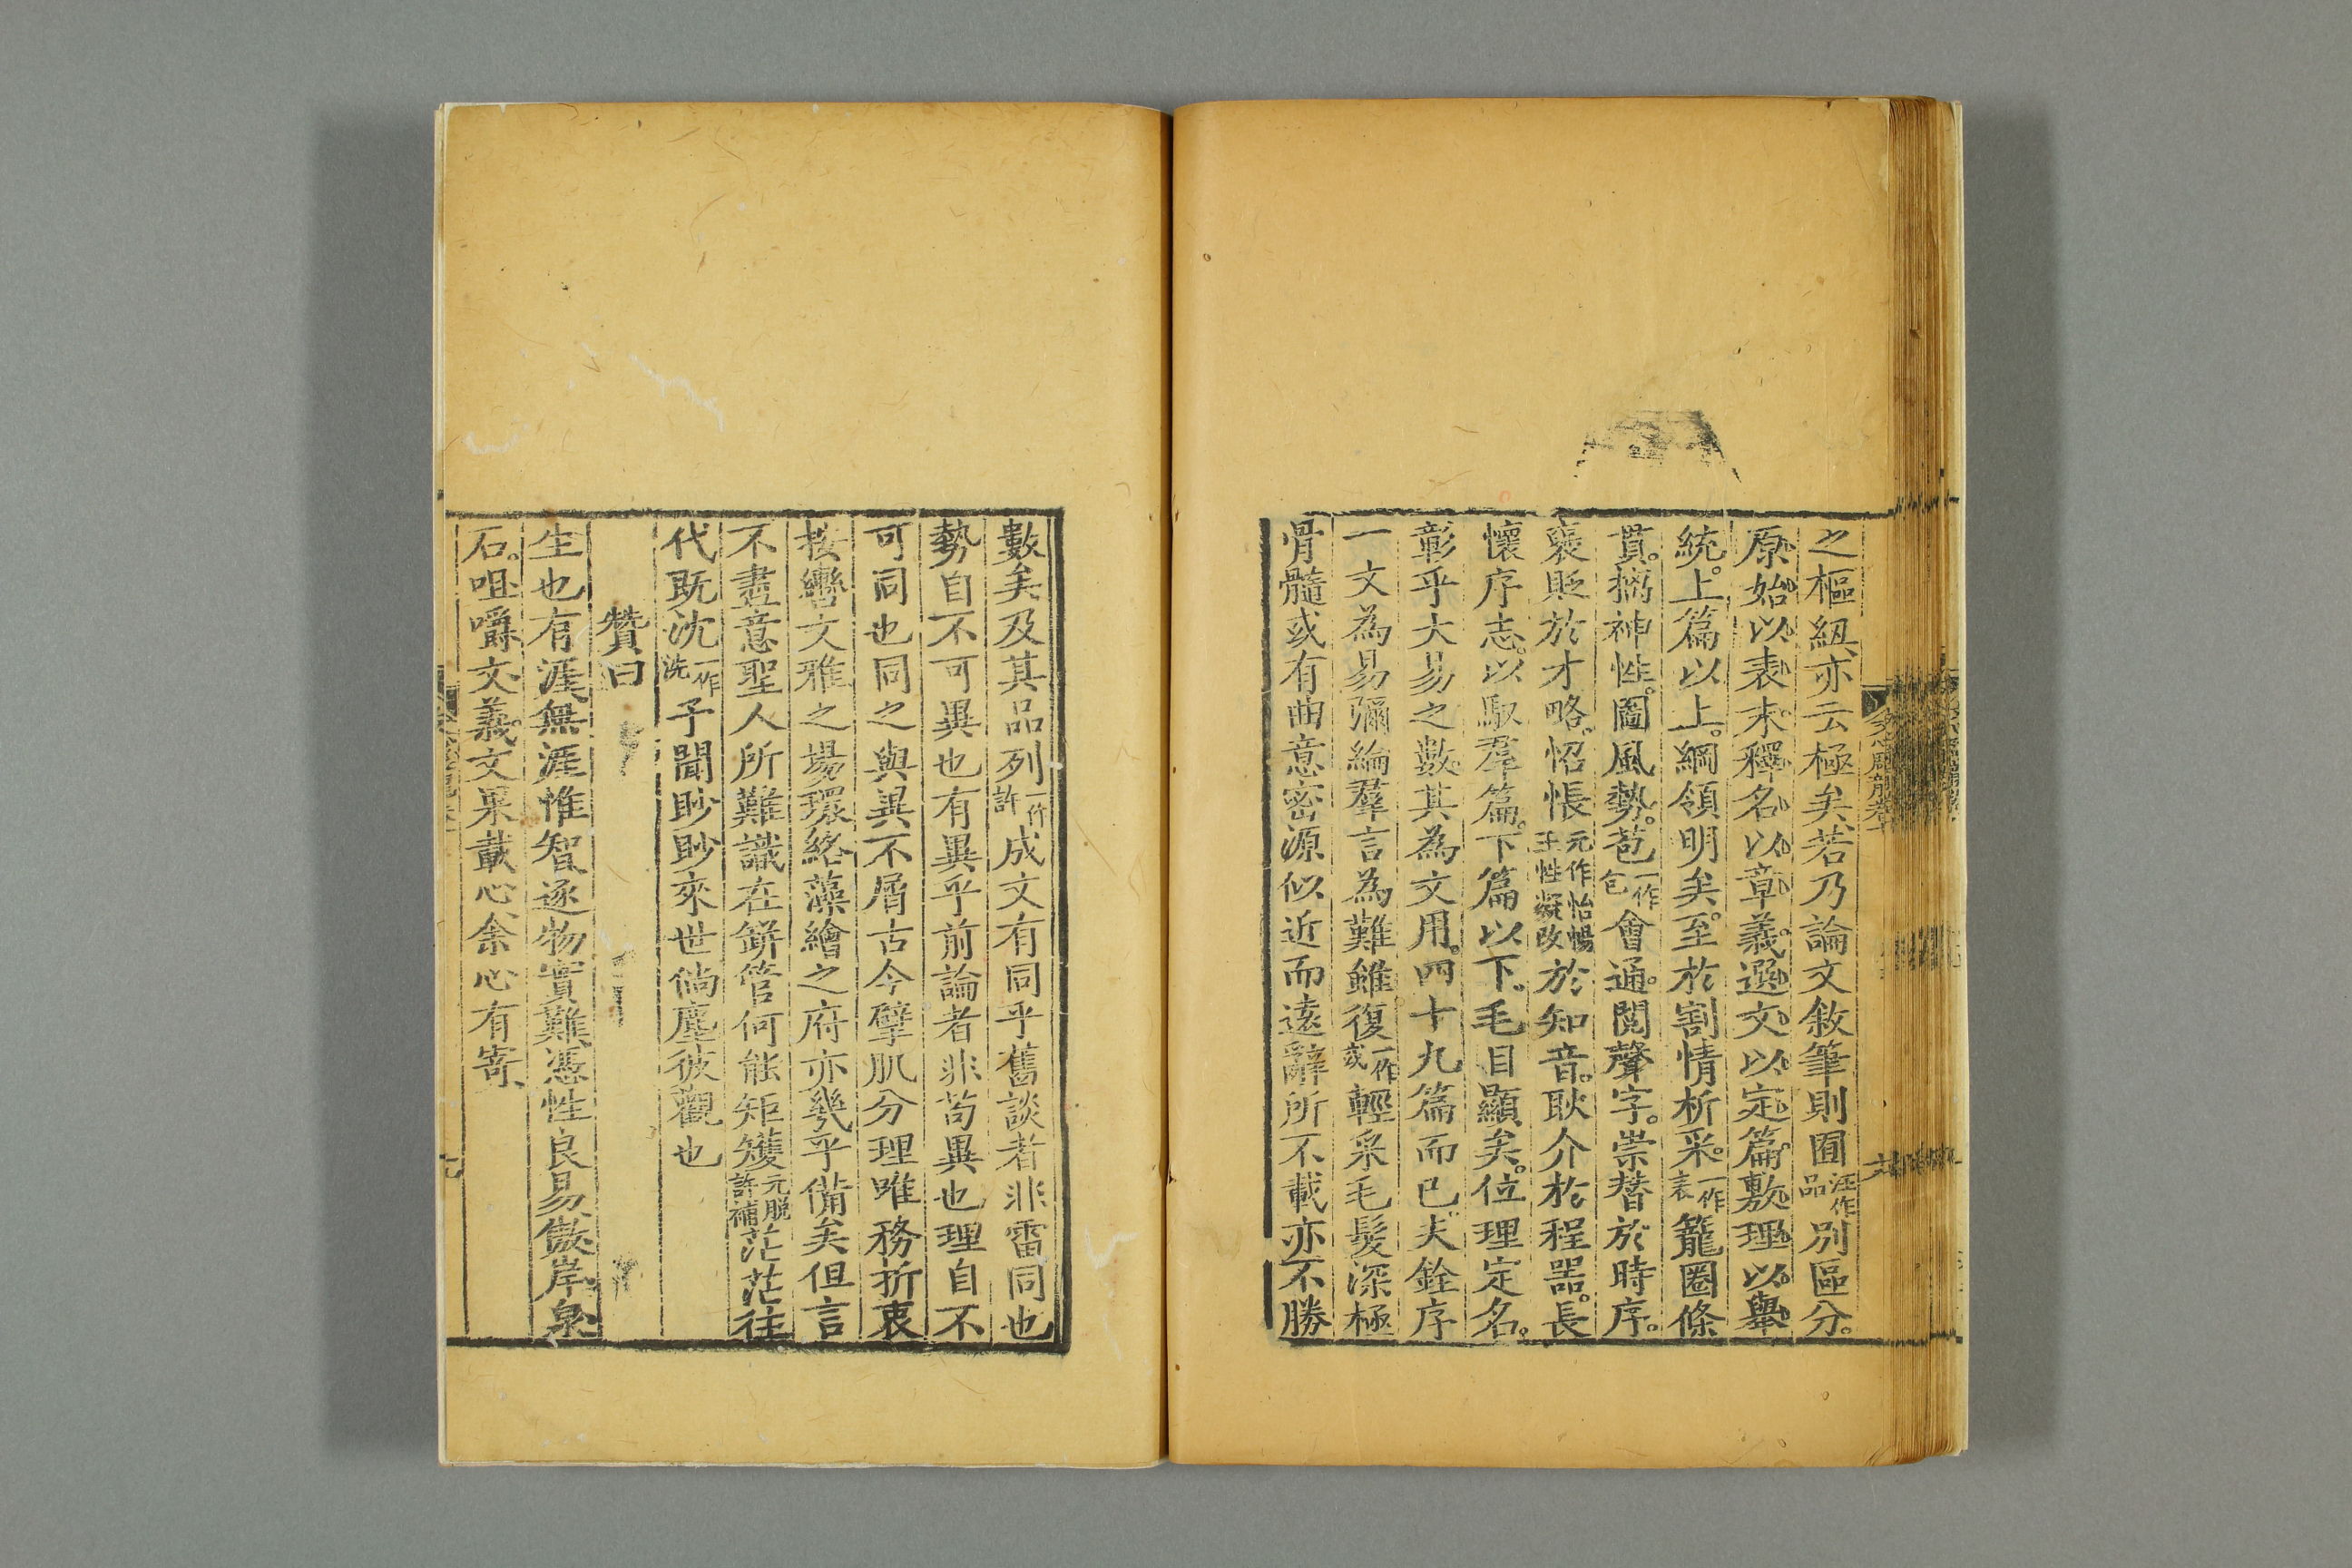 之樞紐亦云極矣若乃論文敘筆則囿汪作品別區分。
原始以表末釋名以章義。選文以定篇敷理以舉
統。上篇以上。綱領明矣。至於割情析釆。一作表籠圈條
貫。摛神性。圖風勢。苞一作包會通。閲聲字。崇替於時序。
襃貶於才略。怊悵元作怡暢王性凝改於知音。耿介於程器。長
懷序志。以馭羣篇。下篇以下。毛目顯矣。位理定名。
彰乎大易之數其為文用。四十九篇而已夫銓序
一文為易彌綸羣言為難雖復一作或輕采毛髮深極
骨髓或有曲意密源似近而遠辭所不載亦不勝
數矣及其品列一作許成文有同乎舊談者非雷同也
勢自不可異也有異乎前論者非苟異也理自不
可同也同之與異不屑古今擘肌分理唯務折衷
按轡文雅之場環絡藻繪之府亦幾乎備矣但言
不盡意聖人所難識在缾管何能矩矱元脫許補茫茫往
代既沈一作洗予聞眇眇來世倘塵彼觀也
贊曰
生也有涯無涯惟智逐物實難憑性良易傲岸泉
石。咀嚼文義。文果載心余心有寄